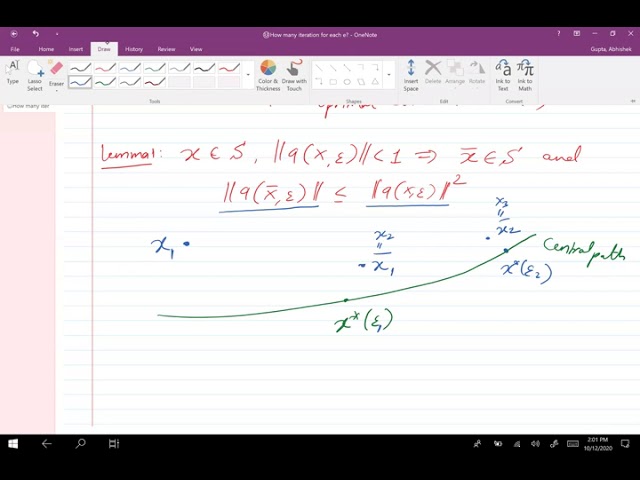 How many iteration for each e? - OneNote
Gupta, Abhishek
File Home Insert Draw History Review View
Type Lasso Select Eraser Color & Thickness Draw with Touch Insert Space Delete Arrange Rotate Ink to Text Ink to Math
Tools Shapes Edit Convert
How many iter
optimal
Lemma1: x ∈ S, ||q(x,ε)|| < 1 ⇒ x̅ ∈ S and
||q(x̅,ε)|| ≤ ||q(x,ε)||²
x₃
=
x₁ x₂ x̅₂ Central path
=
x̅₁ x*(ε₂)
x*(ε₁)
2:01 PM
10/12/2020